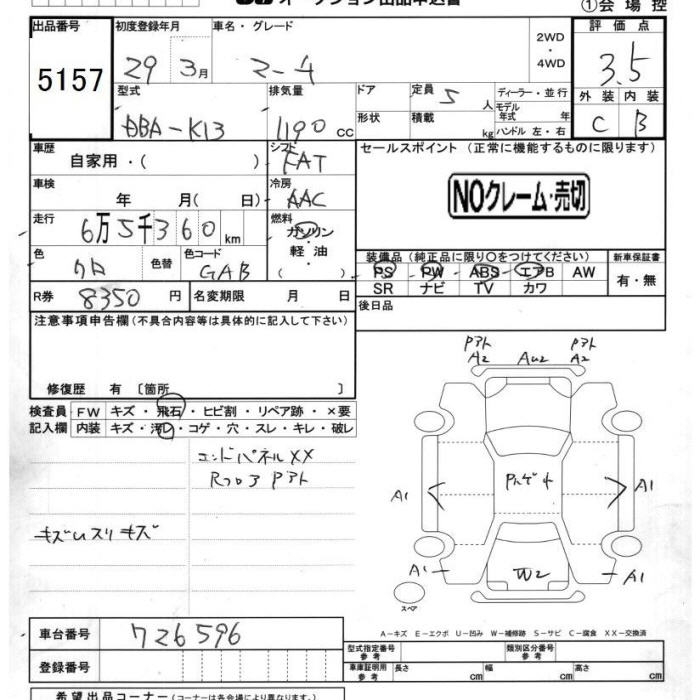 オークション出品申込書
①会場控
出品番号
5157
初度登録年月
29 3月
車名・グレード
マーチ
2WD
・
4WD
評価点
3.5
外装 内装
C B
型式
DBA-K13
排気量
1190 cc
ドア
形状
定員 5 人
積載 kg
ディーラー・並行
モデル年式 年
ハンドル 左・右
車歴
自家用・( )
シフト
FAT
セールスポイント (正常に機能するものに限ります)
NOクレーム・売切
車検
年 月( 日)
冷房
AAC
走行
6万5千360km
燃料
ガソリン
・
軽油
色
クロ
色替
色コード
GAB
装備品 (純正品に限り○をつけてください)
PS PW ABS エアB AW
SR ナビ TV カワ
新車保証書
有・無
R券 8350 円
名変期限 月 日
後日品
注意事項申告欄(不具合内容等は具体的に記入して下さい)
修復歴 有 〔箇所 〕
検査員
記入欄
FW キズ・飛石・ヒビ割・リペア跡・×要
内装 キズ・汚レ・コゲ・穴・スレ・キレ・破レ
エンドパネルXX
Rフロア Pアト
キズウスリキズ
Pアト
A2
AU2
Pアト
A2
A1
A1
A1
W2
A1
スペア
A-キズ E-エクボ U-凹み W-補修跡 S-サビ C-腐食 XX-交換済
車台番号
726596
登録番号
型式指定番号
参考
類別区分番号
参考
車庫証明用
参考
長さ cm
幅 cm
高さ cm
希望出品コーナー(コーナーは各会場により異なります。)